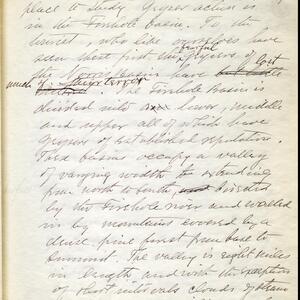 place to study Geyser action is
in the Firehole basin. To the
tourist, who like ourselves have
seen short first the fearful geysers of
the have lost
much of
The Firehole basin is
divided into Lower, middle
and upper all of which have
Geysers of established reputation.
These basins occupy a valley
of varying width extending
from north to south, bisected
by the Firehole river and walled
in by mountains covered by a
dense pine forest from base to
summit. The valley is eight miles
in length and with the exception
of short intervals clouds of steam